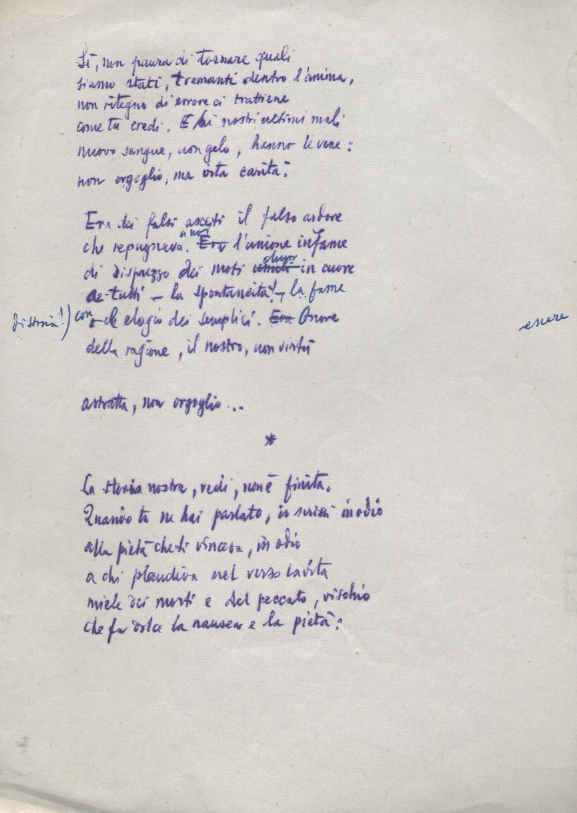 Sì, non paura di tornare quali
siamo stati, tremanti dentro l'anima,
non ritegno di errore ci trattiene
come tu credi. E hi nostri ultimi mali
nuovo sangue, non gelo, hanno le vene:
non orgoglio, ma vita carità:
Era dei falsi asceti il falso ardore
che repugnava. Era l'unione infame
a noi
di disprezzo dei moti in cuore
de tutti – la spontaneità! –, la fame
di storia!) con elogio dei semplici. Era Onore
essere
della ragione, il nostro, non virtù
astratta, non orgoglio...
*
La storia nostra, vedi, non è finita.
Quando tu ne hai parlato, io scrissi in odio
alla pietà che ti vinceva, in odio
a chi plaudiva nel verso la vita
miele dei morti e del peccato, vischio
che fa dolce la nausea e la pietà: